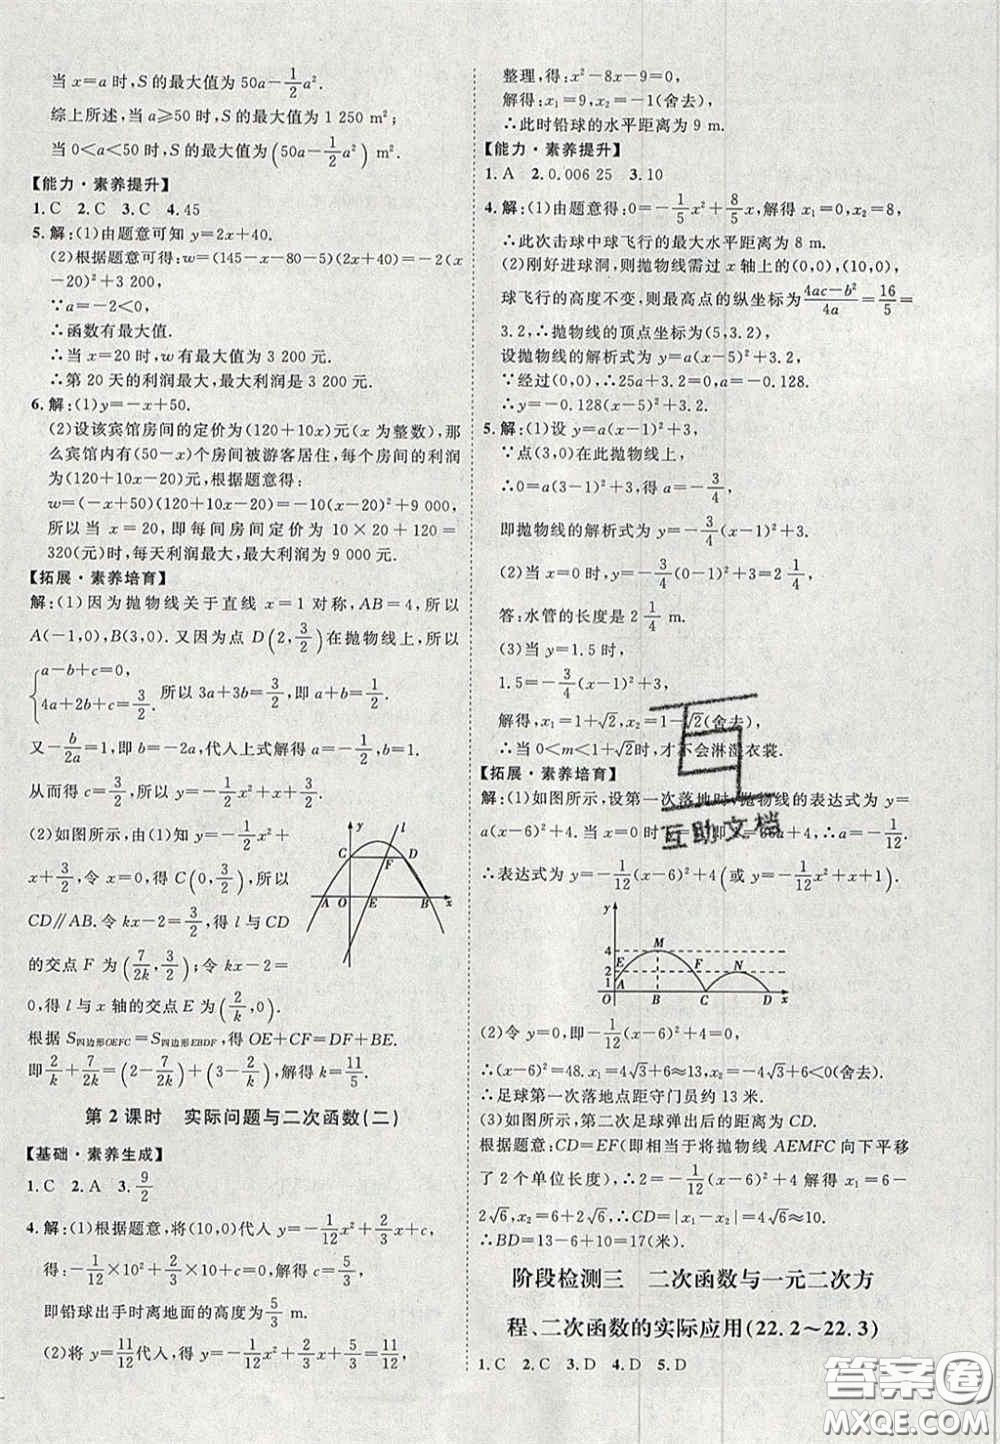 当 x=a 时,S 的最大值为 50a-1/2a².
综上所述,当 a⩾50 时,S 的最大值为 1 250 m²;
当 0<a<50 时,S 的最大值为(50a-1/2a²) m².
【能力·素养提升】
1. C 2. C 3. C 4. 45
5. 解:(1)由题意可知 y=2x+40.
(2)根据题意可得:w=(145-x-80-5)(2x+40)=-2(x
-20)²+3 200,
∵a=-2<0,
∴函数有最大值.
∴当 x=20 时,w 有最大值为 3 200 元.
∴第 20 天的利润最大,最大利润是 3 200 元.
6. 解:(1)y=-x+50.
(2)设该宾馆房间的定价为(120+10x)元(x 为整数),那
么宾馆内有(50-x)个房间被游客居住,每个房间的利润
为(120+10x-20)元,根据题意得:
w=(-x+50)(120+10x-20)=-10(x-20)²+9 000,
所以当 x=20,即每间房间定价为 10×20+120=
320(元)时,每天利润最大,最大利润为 9 000 元.
【拓展·素养培育】
解:(1)因为抛物线关于直线 x=1 对称,AB=4,所以
A(-1,0),B(3,0). 又因为点 D(2,3/2)在抛物线上,所以
{a-b+c=0,
4a+2b+c=3/2. 所以 3a+3b=3/2,即 a+b=1/2.
又-b/2a=1,即 b=-2a,代入上式解得 a=-1/2,b=1.
从而得 c=3/2.
(2)如图所示,由(1)知 y=-1/2x²+
x+3/2,令 x=0,得 C(0,3/2),所以
CD∥AB. 令 kx-2=3/2,得 l 与 CD
的交点 F 为(7/2k,3/2);令 kx-2=
0,得 l 与 x 轴的交点 E 为(2/k,0).
y l C D F A O E B x
根据 S四边形OEFC=S四边形EBDF,得 OE+CF=DF+BE.
即2/k+7/2k=(2-7/2k)+(3-2/k),解得 k=11/5.
第 2 课时 实际问题与二次函数(二)
【基础·素养生成】
1. C 2. A 3. 9/2
4. 解:(1)根据题意,将(10,0)代入 y=-1/12x²+2/3x+c,
得:-1/12×10²+2/3×10+c=0,解得:c=5/3,
即铅球出手时离地面的高度为5/3 m.
(2)将 y=5/12代入,得:-1/12x²+2/3x+5/3=5/12,
整理,得:x²-8x-9=0,
解得:x₁=9,x₂=-1(舍去),
∴此时铅球的水平距离为 9 m.
【能力·素养提升】
1. A 2. 0.006 25 3. 10
4. 解:(1)由题意得:0=-1/5x²+8/5x,解得 x₁=0,x₂=8,
∴此次击球中球飞行的最大水平距离为 8 m.
(2)刚好进球洞,则抛物线需过 x 轴上的(0,0),(10,0),
球飞行的高度不变,则最高点的纵坐标为4ac-b²/4a=16/5=
3.2,∴抛物线的顶点坐标为(5,3.2).
设抛物线的解析式为 y=a(x-5)²+3.2.
∵经过(0,0),∴25a+3.2=0,∴a=-0.128.
∴y=-0.128(x-5)²+3.2.
5. 解:(1)设 y=a(x-1)²+3,
∵点(3,0)在此抛物线上,
∴0=a(3-1)²+3,得 a=-3/4,
即抛物线的解析式为 y=-3/4(x-1)²+3.
(2)当 x=0 时,y=-3/4(0-1)²+3=2 1/4,
答:水管的长度是 2 1/4 m.
(3)当 y=1.5 时,
1.5=-3/4(x-1)²+3,
解得,x₁=1+√2,x₂=1-√2(舍去),
∴当 0<m<1+√2时,才不会淋湿衣裳.
【拓展·素养培育】
解:(1)如图所示,设第一次落地时,抛物线的表达式为 y=
a(x-6)²+4,由已知:当 x=0 时 y=1,即 1=36a+4,∴a=-1/12.
∴表达式为 y=-1/12(x-6)²+4(或 y=-1/12x²+x+1).
y 4 2 E M F N A O B C D x
(2)令 y=0,即-1/12(x-6)²+4=0,
∴(x-6)²=48. ∴x₁=4√3+6≈13,x₂=-4√3+6<0(舍去).
∴足球第一次落地点距守门员约 13 米.
(3)如图所示,第二次足球弹出后的距离为 CD,
根据题意:CD=EF(即相当于将抛物线 AEMFC 向下平移
了 2 个单位长度),∴2=-1/12(x-6)²+4,解得:x₁=6-
2√6,x₂=6+2√6,∴CD=|x₁-x₂|=4√6≈10(米),
∴BD=13-6+10=17(米).
阶段检测三 二次函数与一元二次方
程、二次函数的实际应用(22.2~22.3)
1. C 2. C 3. D 4. D 5. D
互助文档
答案圈
MXQE.COM